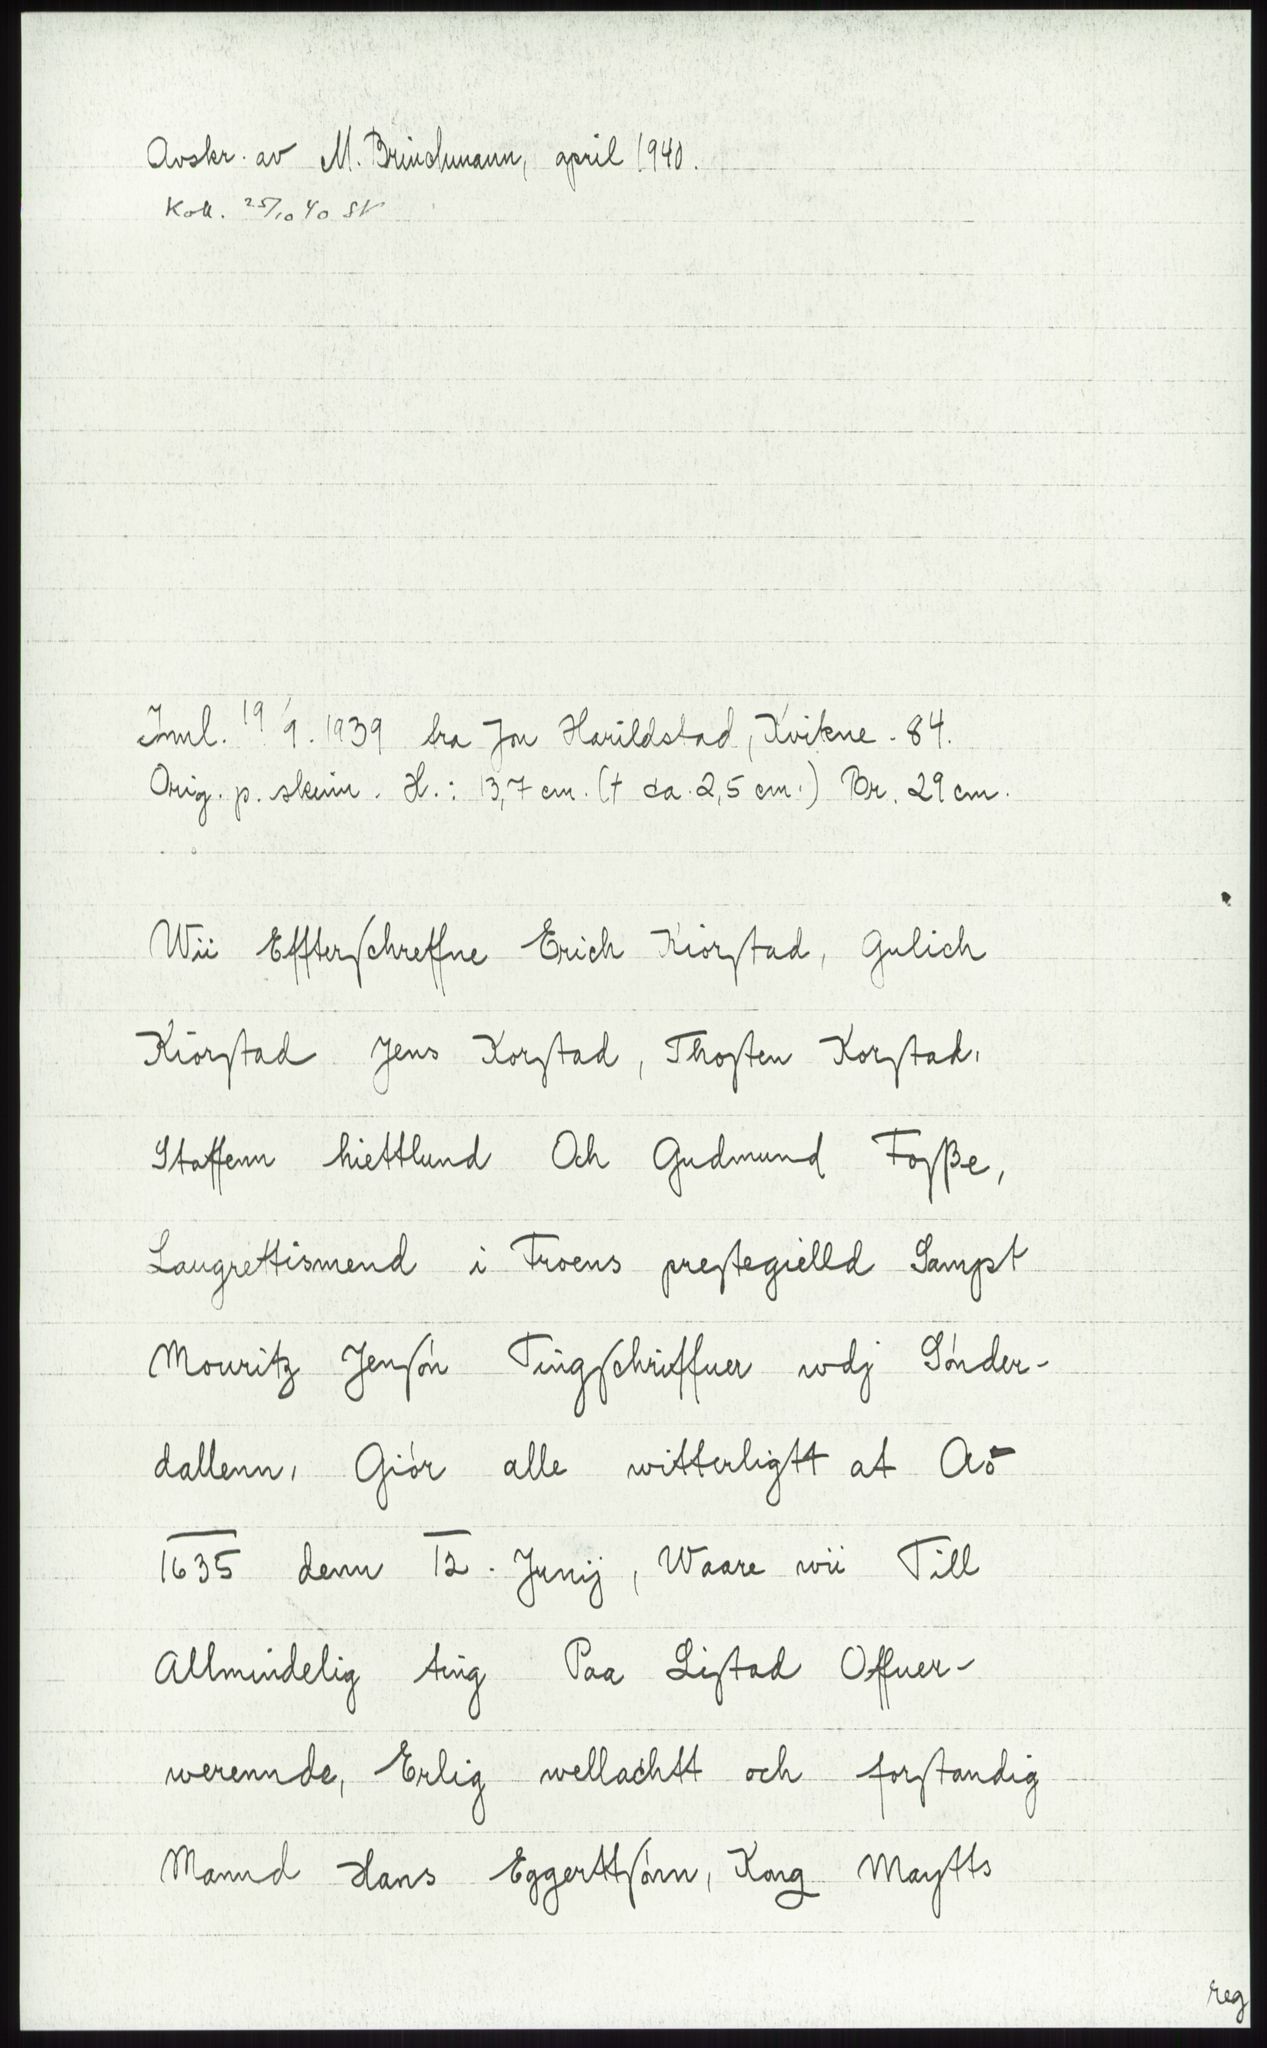 Avskr. av M. Brinchmann, april 1940.
Koll. 25/10 40 SV
Innl. 19/9. 1939 fra Jon Harildstad, Kvikne. 84.
Orig. p. skinn. H.: 13,7 cm. (+ ca. 2,5 cm.) Br. 29 cm.
Wii Effterschreffne Erich Kiorstad, Gulich
Kiorstad Jens Korstad, Thosten Korstad,
Staffenn hiettlund Och Gudmund Fosße,
Laugrettismend i Froens prestegielld Sampt
Mouritz Jensón Tingschriffuer wdj Sónder-
dallenn, Giór alle witterligtt at Ao
1635 denn 12. Junij, Waare wii Till
Allmindelig ting Paa Listad Offuer-
werennde, Erlig wellachtt och forstandig
Mannd Hans Eggerttsónn, Kong Maytts
reg